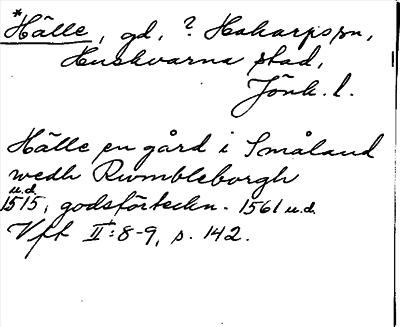 *Hälle, gd, ? Hakarps sn,
Huskvarna stad,
Jönk. l.
Hälle en gård i Småland
wedh Rumbleborgh
u.d.
1515, godsförteckn. 1561 u.d.
Vft II:8-9, s. 142.